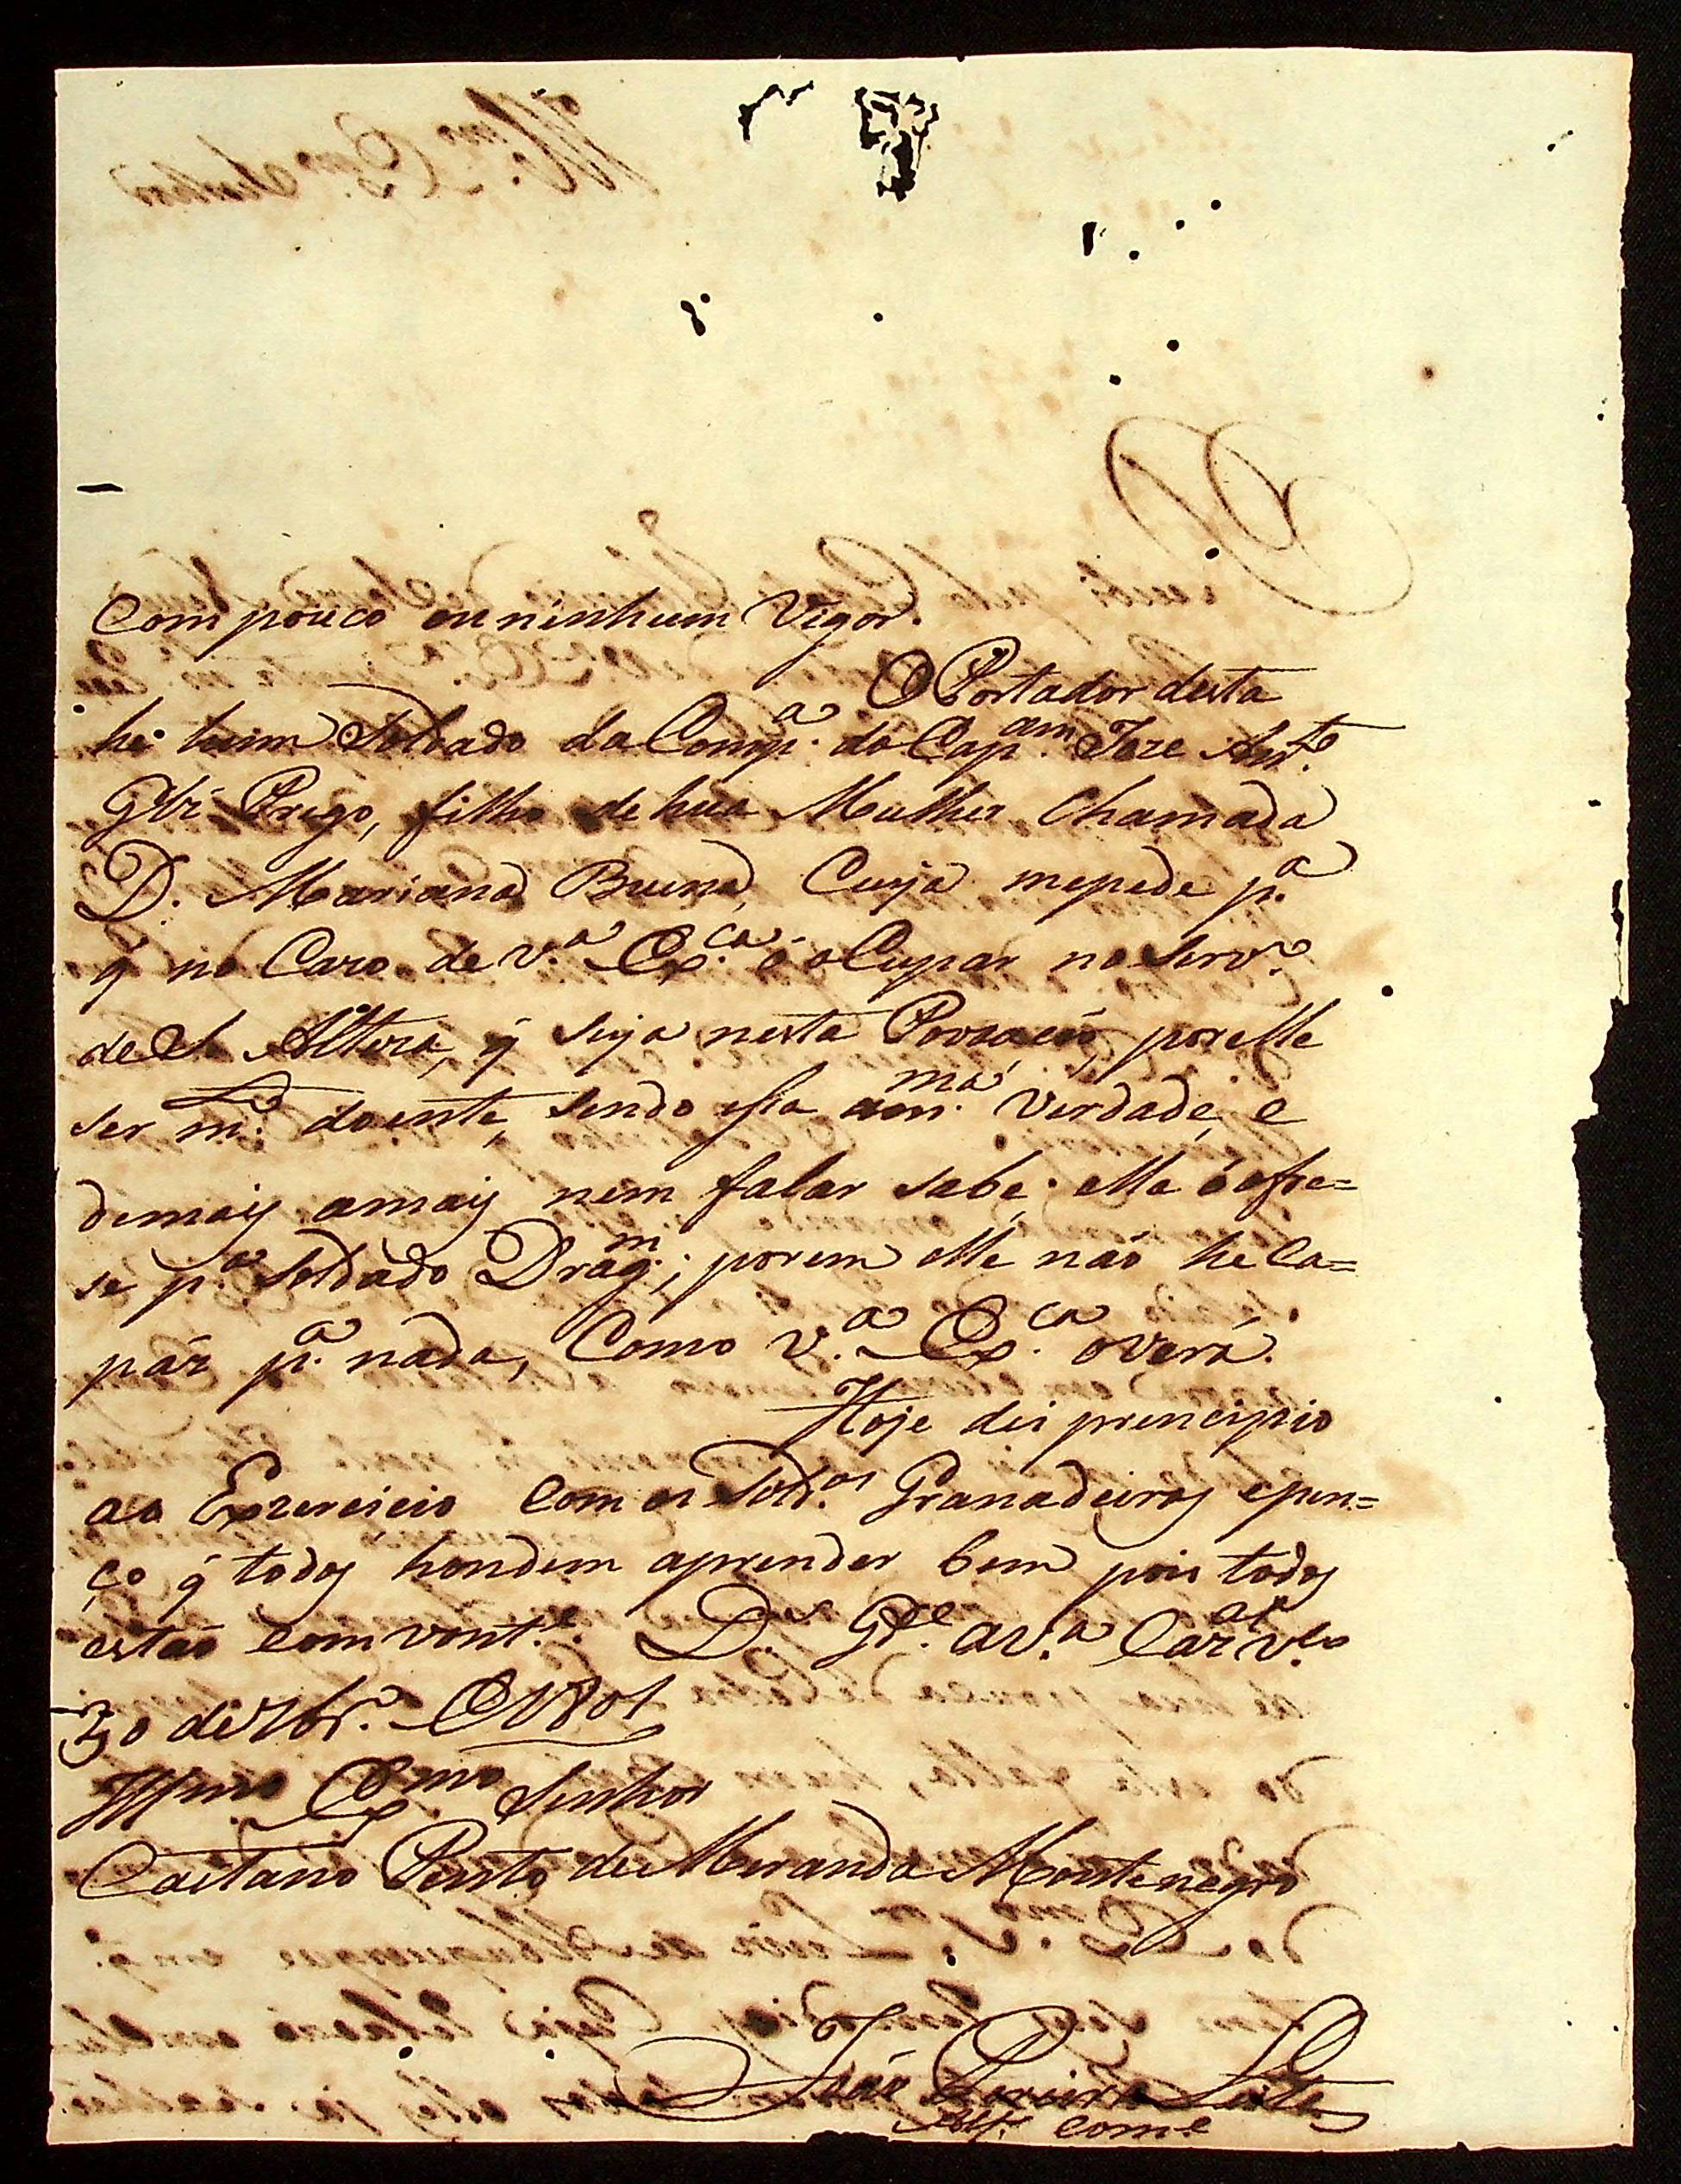 Com pouco ou ninhum Vigor.
O Portador desta
he huim Soldado da Comp.ª do Cap.am Joze Ant.º
Glz Prego, filho de hua Mulher Chamada
D. Mariana Buena, Cuja mepede p.ª
q̃ no Cazo de V.ª Ex.ca ó oCupar no Serv.º
de S. Alteza, q̃ Seja nesta Povoacáo, porelle
ser m.to doente, sendo esta am.ma Verdade, e
demais amais nem falar sabe; ella ó ofre=
se p.ª Soldado Drag.m; porem elle náo he Ca=
páz p.ª nada, Como V.ª Ex.ca overá.
Hoje dei principio
ao Exzercicio Com os Sold.os Granadeiros epen=
ço q̃ todos handem aprender bem pois todos
estáo Comvont.e. D.s G.de aV.ª Caz.al V.co
30 de 7br.º de 1801
Ill.mo Ex.mo Senhor
Caetano Pinto de Miranda Montenegro
Joáo Pereira Leite
Alf. Com.e